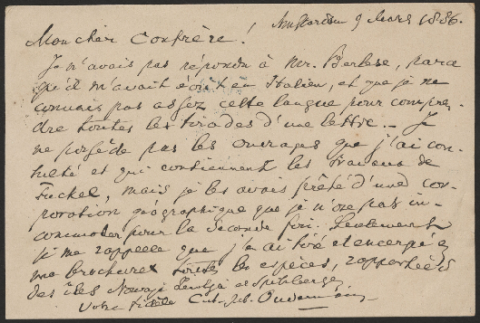 Amsterdam 9 Mars 1886.
Mon cher Confrère!
Je n'avais pas répondu à Mr. Berlese, parce
qu'il m'avait écrit en Italien, et que je ne
connais pas assez cette langue pour compren-
dre toutes les tirades d'une lettre. – Je
ne possède pas les ouvrages que j'ai con-
sulté et qui contiennent les travaux de
Fuckel, mais je les avais prêté d'une cor-
poration géographique que je n'ose pas in-
commoder pour la seconde fois. Seulement
je me rappelle que j'ai tiré et encerpé
ma brochure toutes les espèces, rapportées
des îles Novaja Semlja et Spitsbergen
Votre fidèle Oudemans